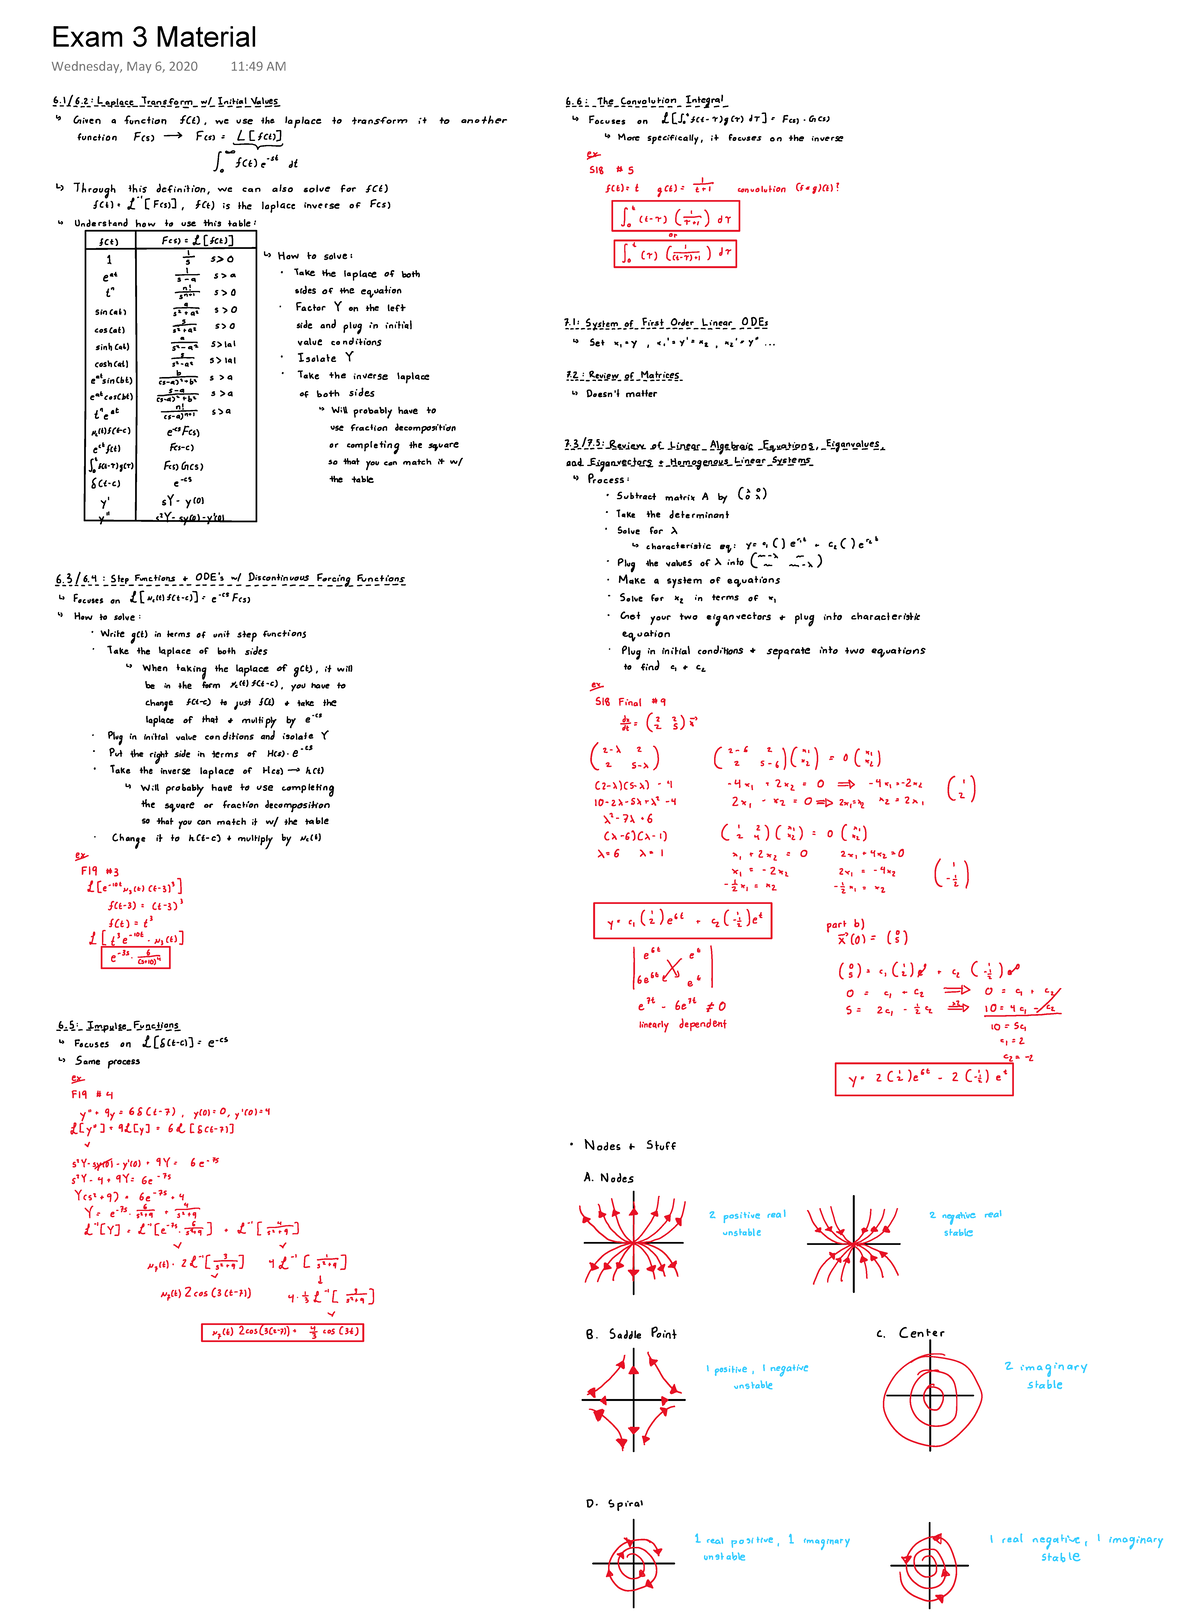 Exam 3 Material
Wednesday, May 6, 2020 11:49 AM
6.1/6.2: Laplace Transform w/ Initial Values
↳ Given a function f(t), we use the laplace to transform it to another
function F(s) → F(s) = L[f(t)]
∫₀^∞ f(t)e^-st dt
↳ Through this definition, we can also solve for f(t)
f(t) = L⁻¹[F(s)], f(t) is the laplace inverse of F(s)
↳ Understand how to use this table:
f(t) F(s) = L[f(t)]
1 1/s s>0
e^at 1/(s-a) s>a
t^n n!/s^(n+1) s>0
sin(at) a/(s²+a²) s>0
cos(at) s/(s²+a²) s>0
sinh(at) a/(s²-a²) s>|a|
cosh(at) s/(s²-a²) s>|a|
e^at sin(bt) b/((s-a)²+b²) s>a
e^at cos(bt) (s-a)/((s-a)²+b²) s>a
t^n e^at n!/(s-a)^(n+1) s>a
u_c(t)f(t-c) e^-cs F(s)
e^ct f(t) F(s-c)
∫₀^t f(t-τ)g(τ) F(s)G(s)
δ(t-c) e^-cs
y' sY - y(0)
y'' s²Y - sy(0) - y'(0)
↳ How to solve:
· Take the laplace of both
sides of the equation
· Factor Y on the left
side and plug in initial
value conditions
· Isolate Y
· Take the inverse laplace
of both sides
↳ Will probably have to
use fraction decomposition
or completing the square
so that you can match it w/
the table
6.3/6.4: Step Functions + ODE's w/ Discontinuous Forcing Functions
↳ Focuses on L[u_c(t)f(t-c)] = e^-cs F(s)
↳ How to solve:
· Write g(t) in terms of unit step functions
· Take the laplace of both sides
↳ When taking the laplace of g(t), it will
be in the form u_c(t)f(t-c), you have to
change f(t-c) to just f(t) + take the
laplace of that + multiply by e^-cs
· Plug in initial value conditions and isolate Y
· Put the right side in terms of H(s)·e^-cs
· Take the inverse laplace of H(s) → h(t)
↳ Will probably have to use completing
the square or fraction decomposition
so that you can match it w/ the table
· Change it to h(t-c) + multiply by u_c(t)
ex
F19 #3
L[e^-10t u₃(t) (t-3)³]
f(t-3) = (t-3)³
f(t) = t³
L[t³e^-10t · u₃(t)]
e^-3s · 6/(s+10)⁴
6.5: Impulse Functions
↳ Focuses on L[δ(t-c)] = e^-cs
↳ Same process
ex
F19 #4
y'' + 9y = 6δ(t-7), y(0)=0, y'(0)=4
L[y''] + 9L[y] = 6L[δ(t-7)]
s²Y - sy(0) - y'(0) + 9Y = 6e^-7s
s²Y - 4 + 9Y = 6e^-7s
Y(s²+9) = 6e^-7s + 4
Y = e^-7s · 6/(s²+9) + 4/(s²+9)
L⁻¹[Y] = L⁻¹[e^-7s · 6/(s²+9)] + L⁻¹[4/(s²+9)]
u₇(t) · 2L⁻¹[3/(s²+9)] 4L⁻¹[1/(s²+9)]
u₇(t) 2cos(3(t-7)) 4·1/3 L⁻¹[3/(s²+9)]
u₇(t) 2cos(3(t-7)) + 4/3 cos(3t)
6.6: The Convolution Integral
↳ Focuses on L[∫₀^t f(t-τ)g(τ) dτ] = F(s)·G(s)
↳ More specifically, it focuses on the inverse
ex
S18 #5
f(t)=t g(t)= 1/(t+1) convolution (f*g)(t)?
∫₀^t (t-τ) (1/(τ+1)) dτ
or
∫₀^t (τ) (1/((t-τ)+1)) dτ
7.1: System of First Order Linear ODEs
↳ Set x₁=y, x₁'=y'=x₂, x₂'=y'' ...
7.2: Review of Matrices
↳ Doesn't matter
7.3/7.5: Review of Linear Algebraic Equations, Eigenvalues,
and Eigenvectors + Homogenous Linear Systems
↳ Process:
· Subtract matrix A by (λ 0 / 0 λ)
· Take the determinant
· Solve for λ
↳ characteristic eq: y = c₁( )e^r₁t + c₂( )e^r₂t
· Plug the values of λ into (~-λ ~ / ~ ~-λ)
· Make a system of equations
· Solve for x₂ in terms of x₁
· Get your two eigenvectors + plug into characteristic
equation
· Plug in initial conditions + separate into two equations
to find c₁ + c₂
ex
S18 Final #9
dx/dt = (2 2 / 2 5) x⃗
(2-λ 2 / 2 5-λ) (2-6 2 / 2 5-6)(x₁ / x₂) = 0(x₁ / x₂)
(2-λ)(5-λ) - 4 -4x₁ + 2x₂ = 0 ⇒ -4x₁=-2x₂ (1 / 2)
10-2λ-5λ+λ²-4 2x₁ - x₂ = 0 ⇒ 2x₁=x₂ x₂=2x₁
λ²-7λ+6 (1 2 / 2 4)(x₁ / x₂) = 0(x₁ / x₂)
(λ-6)(λ-1)
λ=6 λ=1 x₁ + 2x₂ = 0 2x₁+4x₂=0
x₁ = -2x₂ 2x₁ = -4x₂ (1 / -1/2)
-1/2x₁ = x₂ -1/2x₁ = x₂
y = c₁(1 / 2)e^6t + c₂(1 / -1/2)e^t
| e^6t e^t |
| 6e^6t e^t |
e^7t - 6e^7t ≠ 0
linearly dependent
part b)
x⃗(0) = (0 / 5)
(0 / 5) = c₁(1 / 2) + c₂(1 / -1/2)
0 = c₁ + c₂ ⇒ 0 = c₁ + c₂
5 = 2c₁ - 1/2c₂ ×2⇒ 10 = 4c₁ - c₂
10 = 5c₁
c₁=2
c₂=-2
y = 2(1 / 2)e^6t - 2(1 / -1/2)e^t
· Nodes + Stuff
A. Nodes
2 positive real
unstable
2 negative real
stable
B. Saddle Point
1 positive, 1 negative
unstable
C. Center
2 imaginary
stable
D. Spiral
1 real positive, 1 imaginary
unstable
1 real negative, 1 imaginary
stable